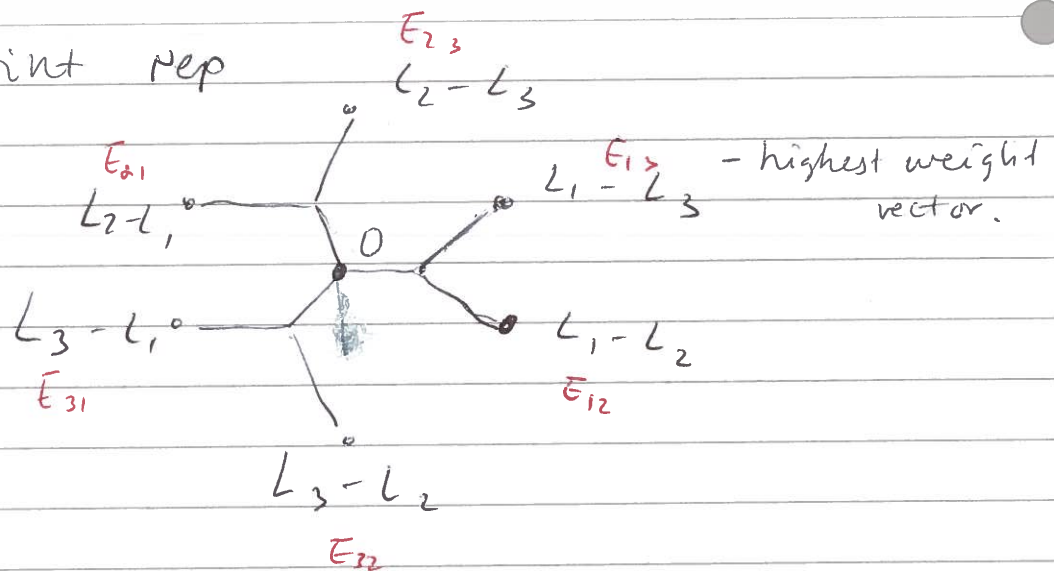 int rep
E₂₃
L₂ - L₃
E₂₁
L₂-L₁
E₁₃
L₁ - L₃
- highest weight
vector.
O
L₃ - L₁
E₃₁
L₁ - L₂
E₁₂
L₃ - L₂
E₃₂